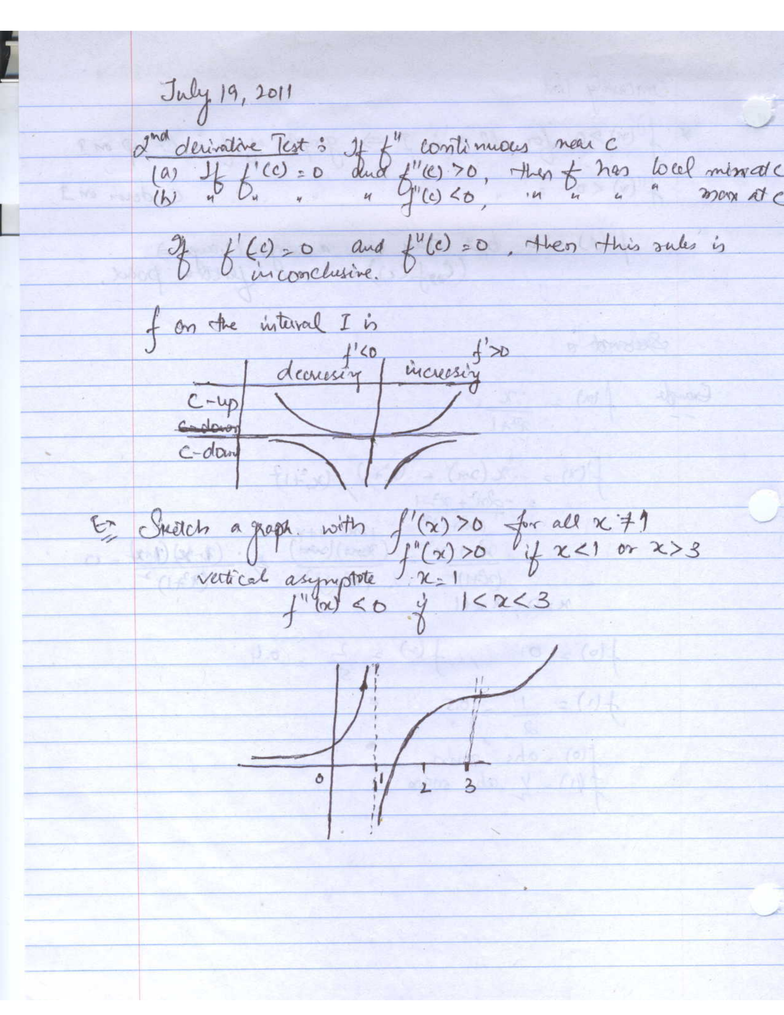 July 19, 2011
2nd derivative Test : If f" continuous near c
(a) If f'(c) = 0 and f"(c) >0, then f has local min at c
(b) " " " " f"(c) <0, " " " " max at c
If f'(c) = 0 and f"(c) = 0, then this rules is
inconclusive.
f on the interval I is
f'<0 f'>0
decreasing increasing
C-up
C-down
C-down
Ex Sketch a graph with f'(x) >0 for all x ≠ 1
f"(x) >0 if x<1 or x>3
vertical asymptote x=1
f"(x) <0 if 1<x<3
0 1 2 3